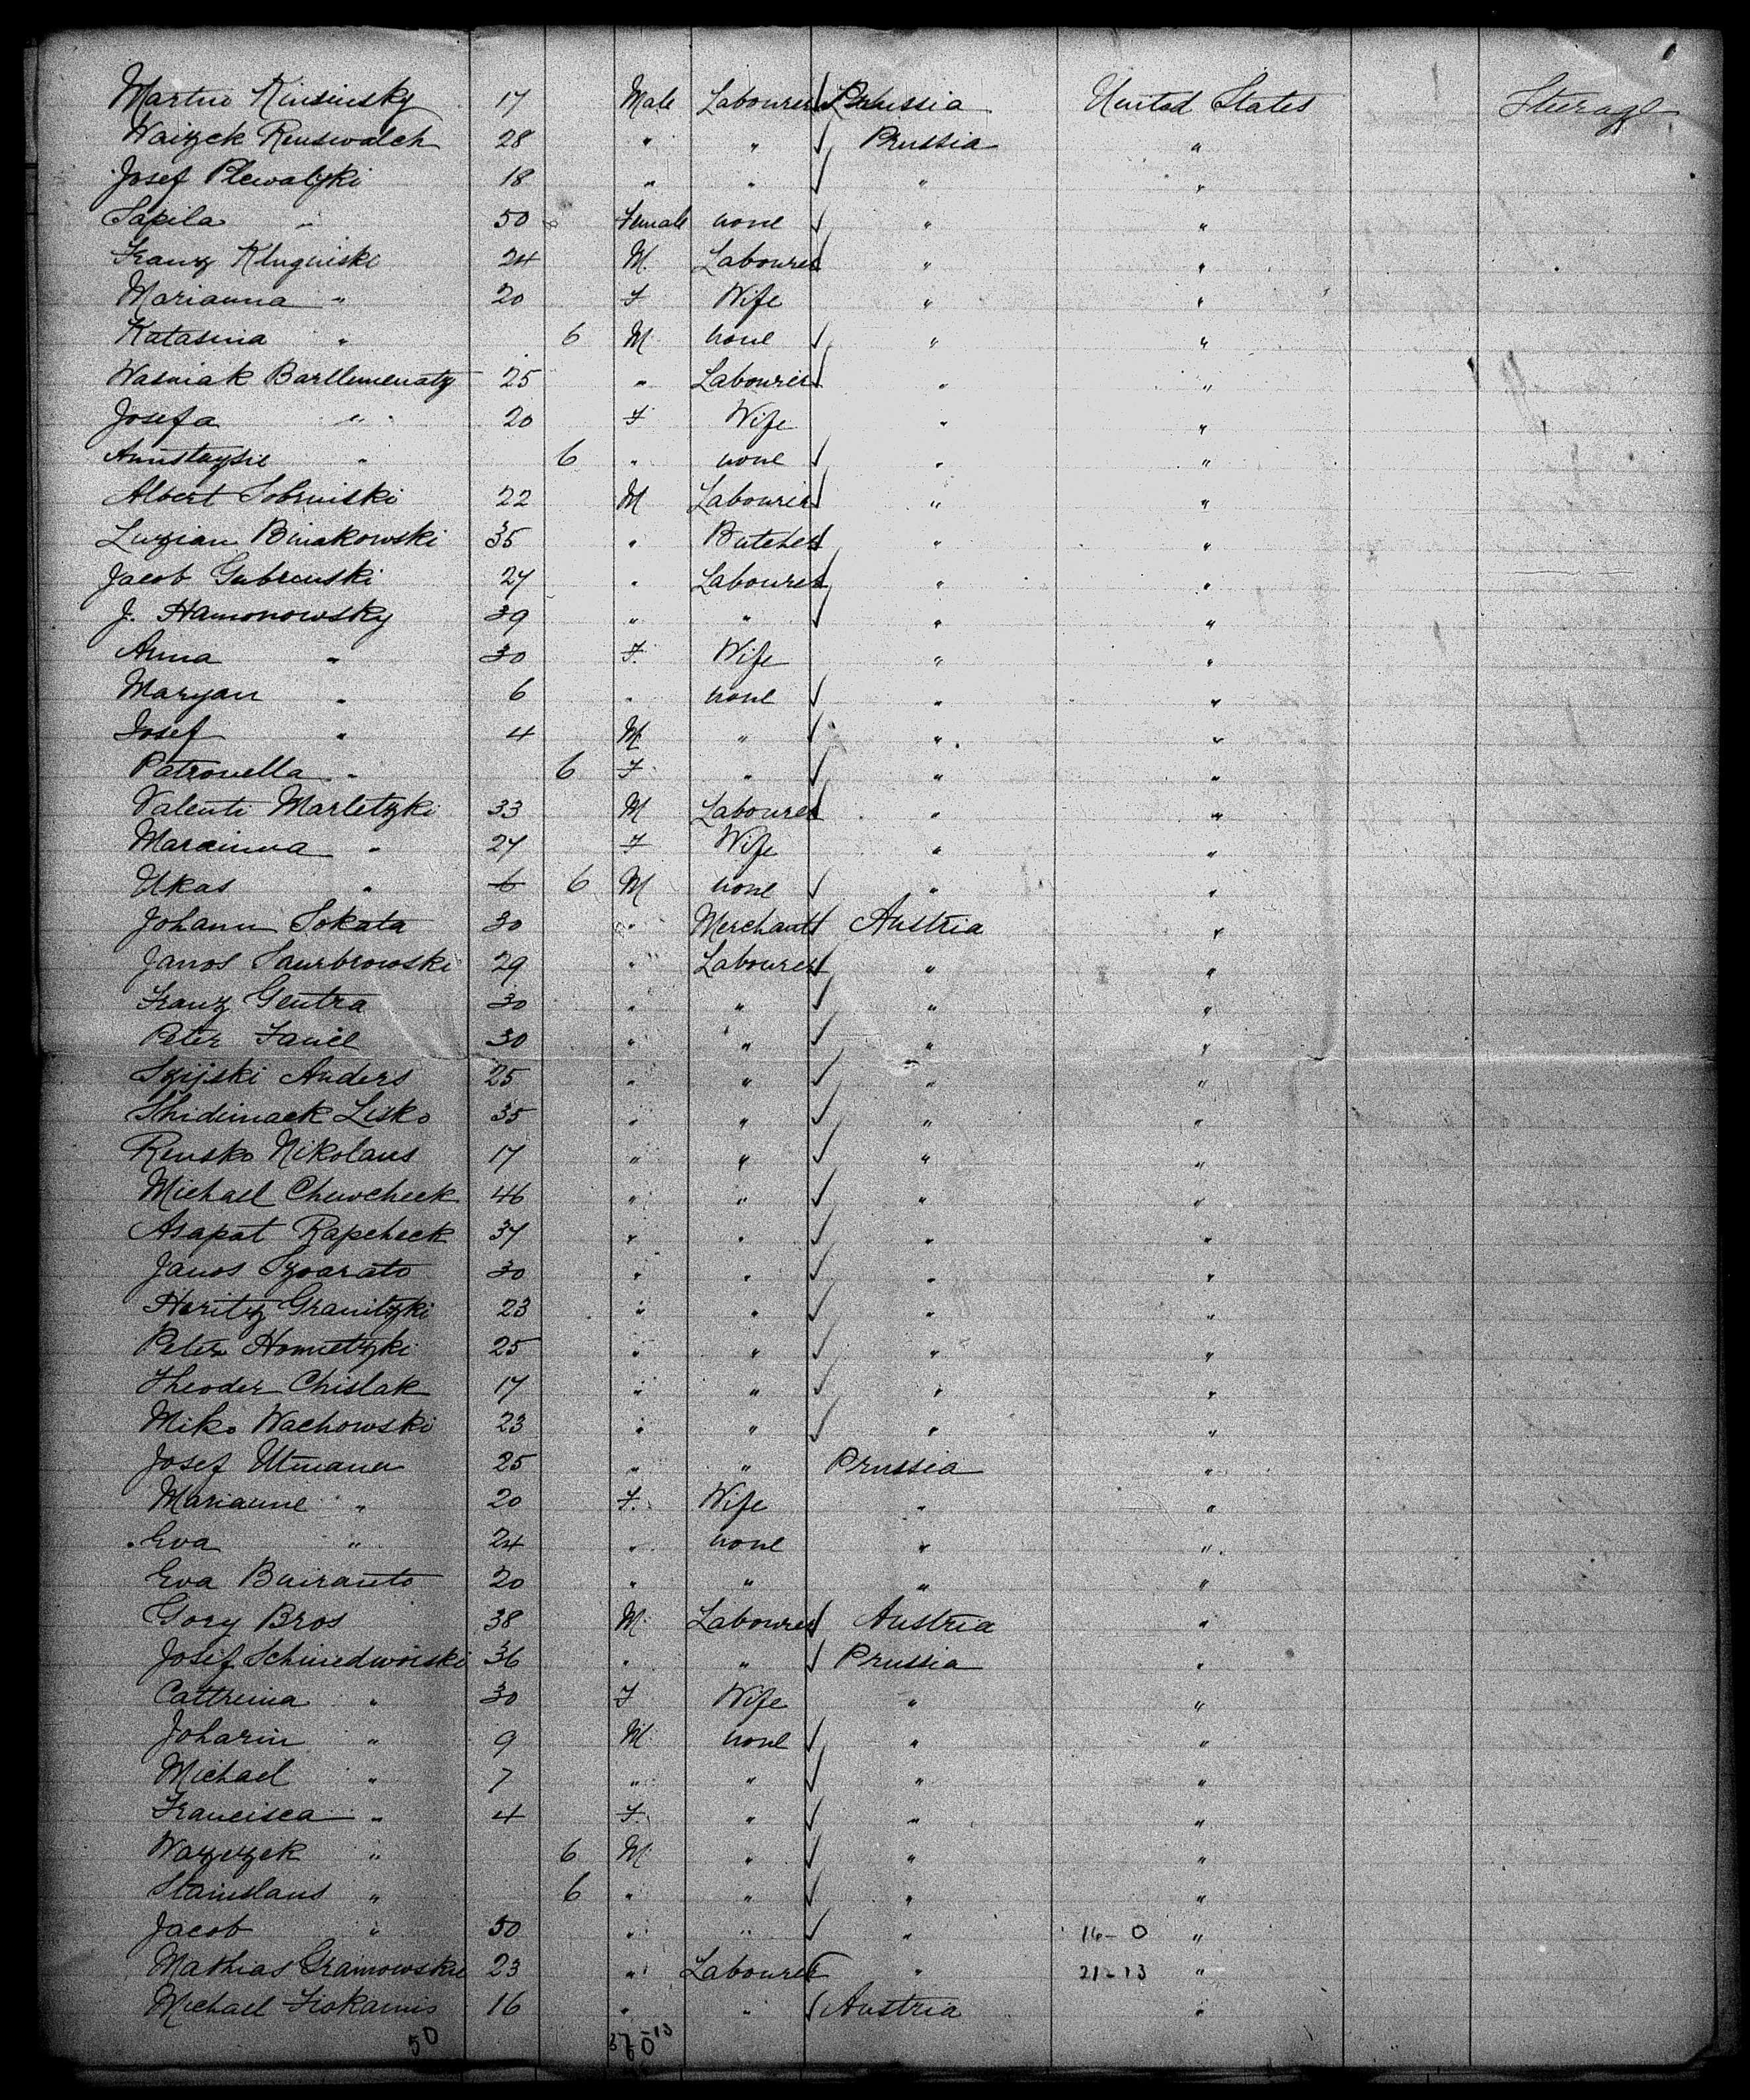 Martin Kinsinsky 17 Male Labourer Prussia United States Steerage
Waizek Renswalch 28 " " Prussia "
Josef Plewatzki 18 " " " "
Sapila " 50 Female none " "
Franz Kluginski 24 M. Labourer " "
Marianna " 20 F Wife " "
Katasina " 6 M none " "
Wasniak Bartlemenatz 25 " Labourer " "
Josefa " 20 F Wife " "
Annstaysie " 6 " none " "
Albert Sobrniski 22 M Labourer " "
Luzian Biniakowski 35 " Butcher " "
Jacob Gubrenski 27 " Labourer " "
J. Hamonowsky 39 " " " "
Anna " 30 F. Wife " "
Maryan " 6 " none " "
Josef " 4 M " " "
Patronella " 6 F " " "
Valenti Marletzki 33 M Labourer " "
Marcinna " 27 F Wife " "
Ukas " 6 6 M none " "
Johann Sokata 30 " Merchant Austria "
Janos Saurbrowski 29 " Labourer " "
Franz Gentra 30 " " " "
Peter Fanil 30 " " " "
Szijski Anders 25 " " " "
Shidimack Lisko 35 " " " "
Rensko Nikolaus 17 " " " "
Michael Chewcheck 46 " " " "
Asapat Rapcheck 37 " " " "
Janos Szoarato 30 " " " "
Horitz Granitzki 23 " " " "
Peter Homietzki 25 " " " "
Theoder Chislak 17 " " " "
Miko Wachowski 23 " " " "
Josef Utmana 25 " " Prussia "
Marianne " 20 F. Wife " "
Eva " 24 " none " "
Eva Buiranto 20 " " " "
Gory Bros 38 M. Labourer Austria "
Josef Schniedwoiski 36 " " Prussia "
Cattreina " 30 F Wife " "
Joharin " 9 M none " "
Michael " 7 " " " "
Francisca " 4 F. " " "
Wazezek " 6 M " " "
Stainslaus " 6 " " " "
Jacob " 50 " " " 16-0 "
Mathias Grainowskie 23 " Labourer " 21-13 "
Michael Fiokarnis 16 " " Austria "
50